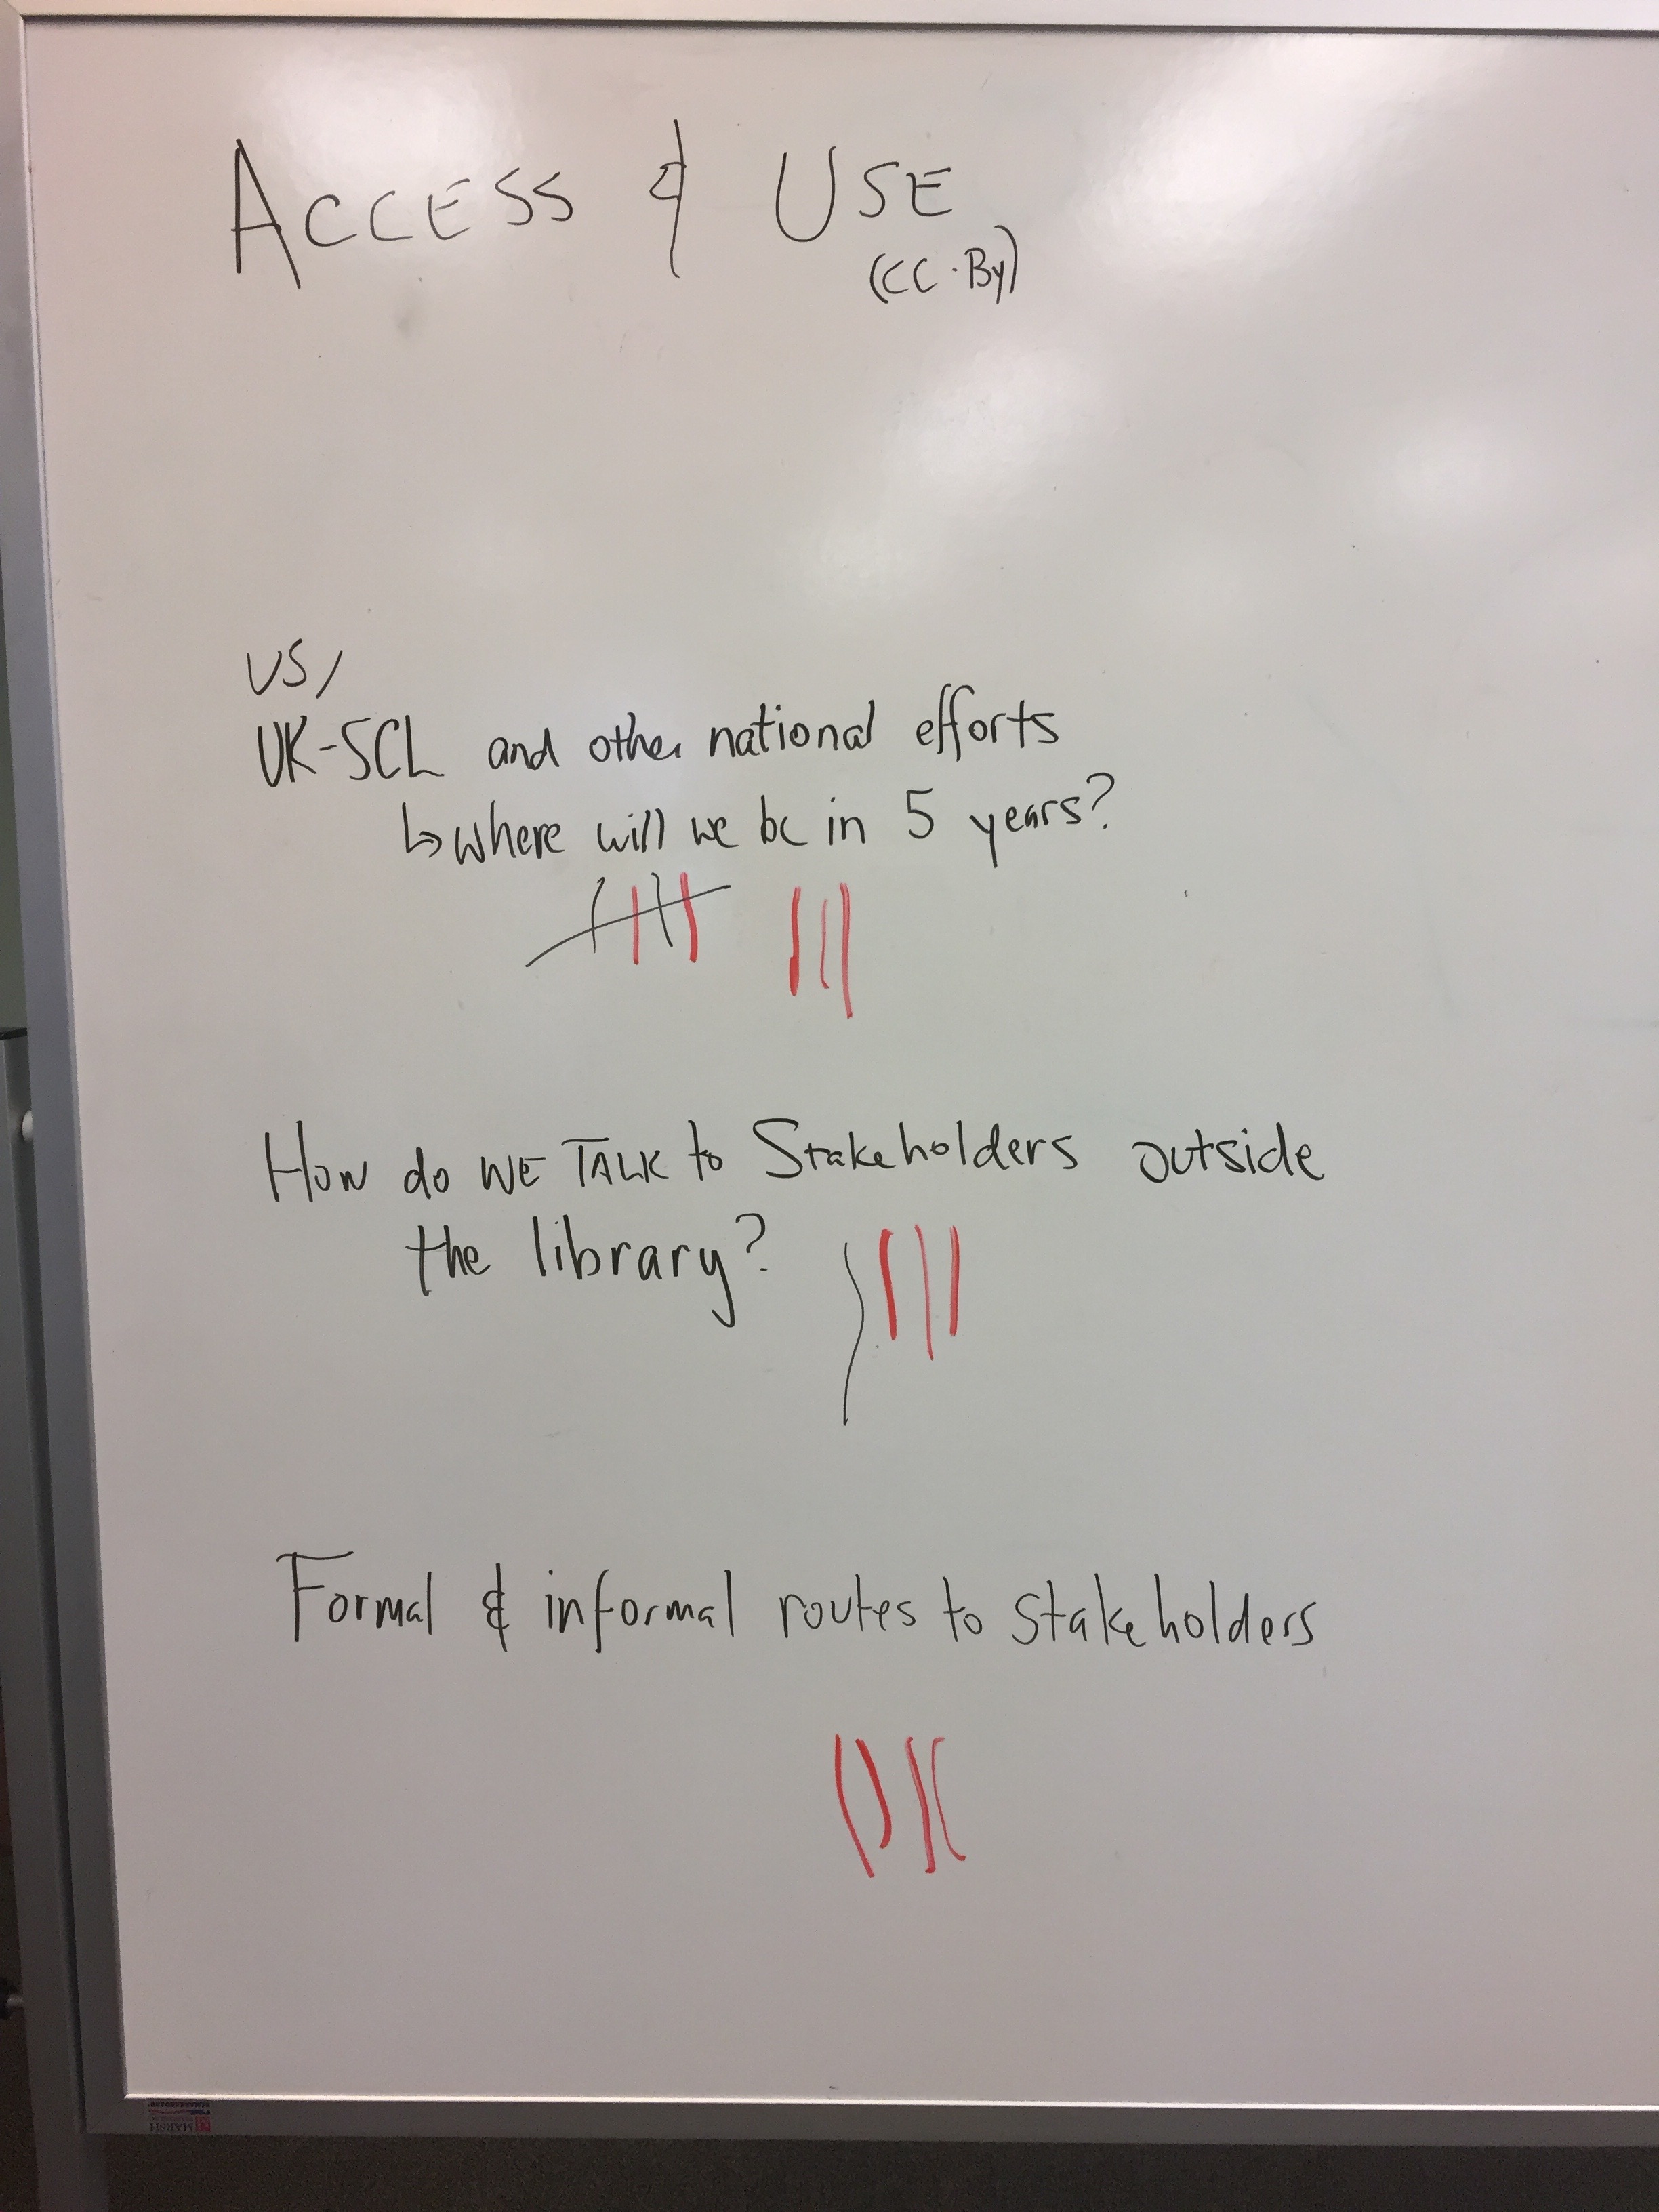 ACCESS & USE
(CC-By)
US/
UK-SCL and other national efforts
↳ where will we be in 5 years?
How do WE TALK to Stakeholders outside
the library?
Formal & informal routes to stakeholders
MARSH